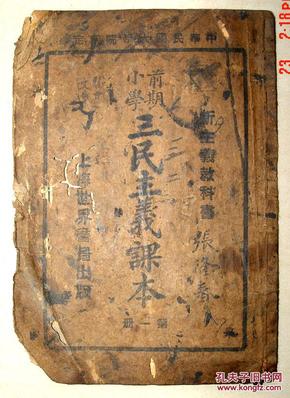 中華民國大學院審定
新主義教科書
張隆春
前期
小學
三民主義課本
第二冊
上海世界書局出版
23 2:18 PM
孔夫子旧书网